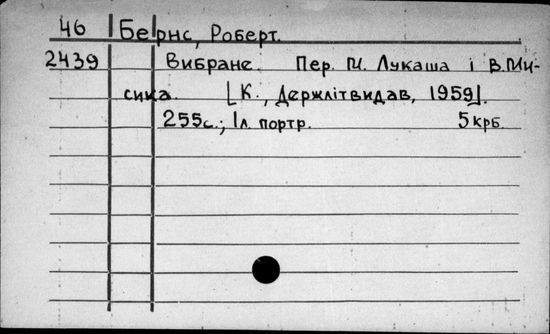 46 Бернс, Роберт.
2439 Вибране. Пер. М. Лукаша і В. Ми-
сика. [К., Держлітвидав, 1959].
255с.; 1л. портр. 5 крб.